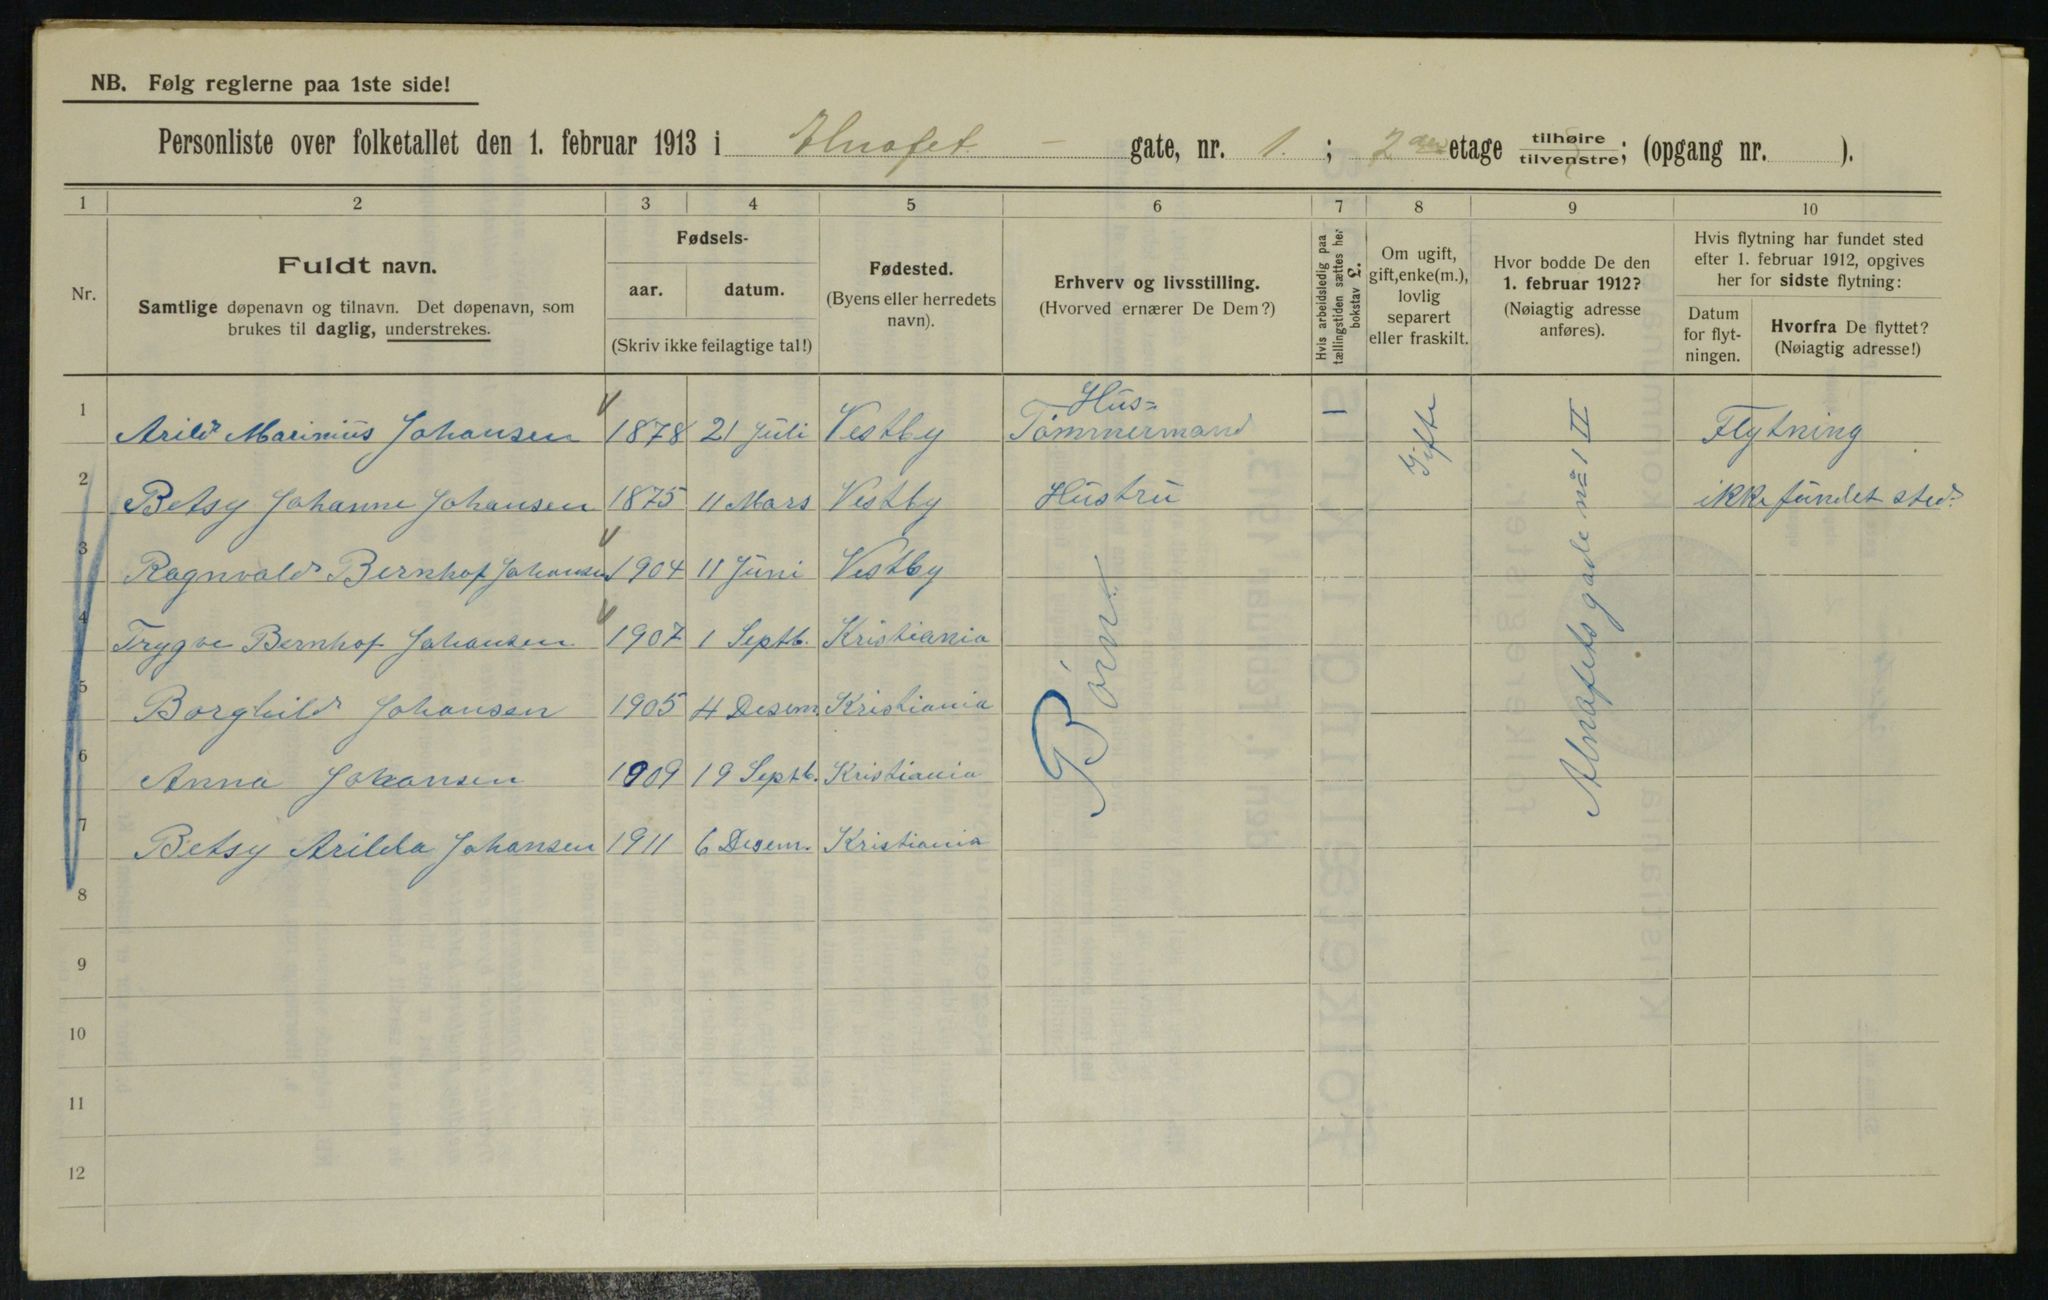 NB. Følg reglerne paa 1ste side!
Personliste over folketallet den 1. februar 1913 i Alnafet - gate, nr. 1. ; 2den etage tilhøire/tilvenstre; (opgang nr. ).
1 2 3 4 5 6 7 8 9 10
Nr.
Fuldt navn.
Samtlige døpenavn og tilnavn. Det døpenavn, som
brukes til daglig, understrekes.
Fødsels-
aar. datum.
(Skriv ikke feilagtige tal!)
Fødested.
(Byens eller herredets
navn).
Erhverv og livsstilling.
(Hvorved ernærer De Dem?)
Hvis arbeidsledig paa
tællingstiden sættes her
bokstav £.
Om ugift,
gift, enke(m.),
lovlig
separert
eller fraskilt.
Hvor bodde De den
1. februar 1912?
(Nøiagtig adresse
anføres).
Hvis flytning har fundet sted
efter 1. februar 1912, opgives
her for sidste flytning:
Datum
for flyt-
ningen.
Hvorfra De flyttet?
(Nøiagtig adresse!)
1 Arild Marinius Johansen 1878 21 Juli Vestby Hus= Tømmermand Flytning
2 Betsy Johanne Johansen 1875 11 Mars Vestby Hustru ikke fundet sted.
3 Ragnvald Bernhof Johansen 1904 11 Juni Vestby
4 Trygve Bernhof Johansen 1907 1 Septb. Kristiania
5 Borghild Johansen 1905 4 Desem. Kristiania
6 Anna Johansen 1909 19 Septb. Kristiania
7 Betsy Arilda Johansen 1911 6 Desem. Kristiania
Børn
Gifte
Alnafets gade no 1 II
8
9
10
11
12